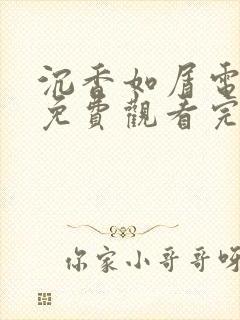 沉香如屑電
免費觀看完
你家小哥哥呀